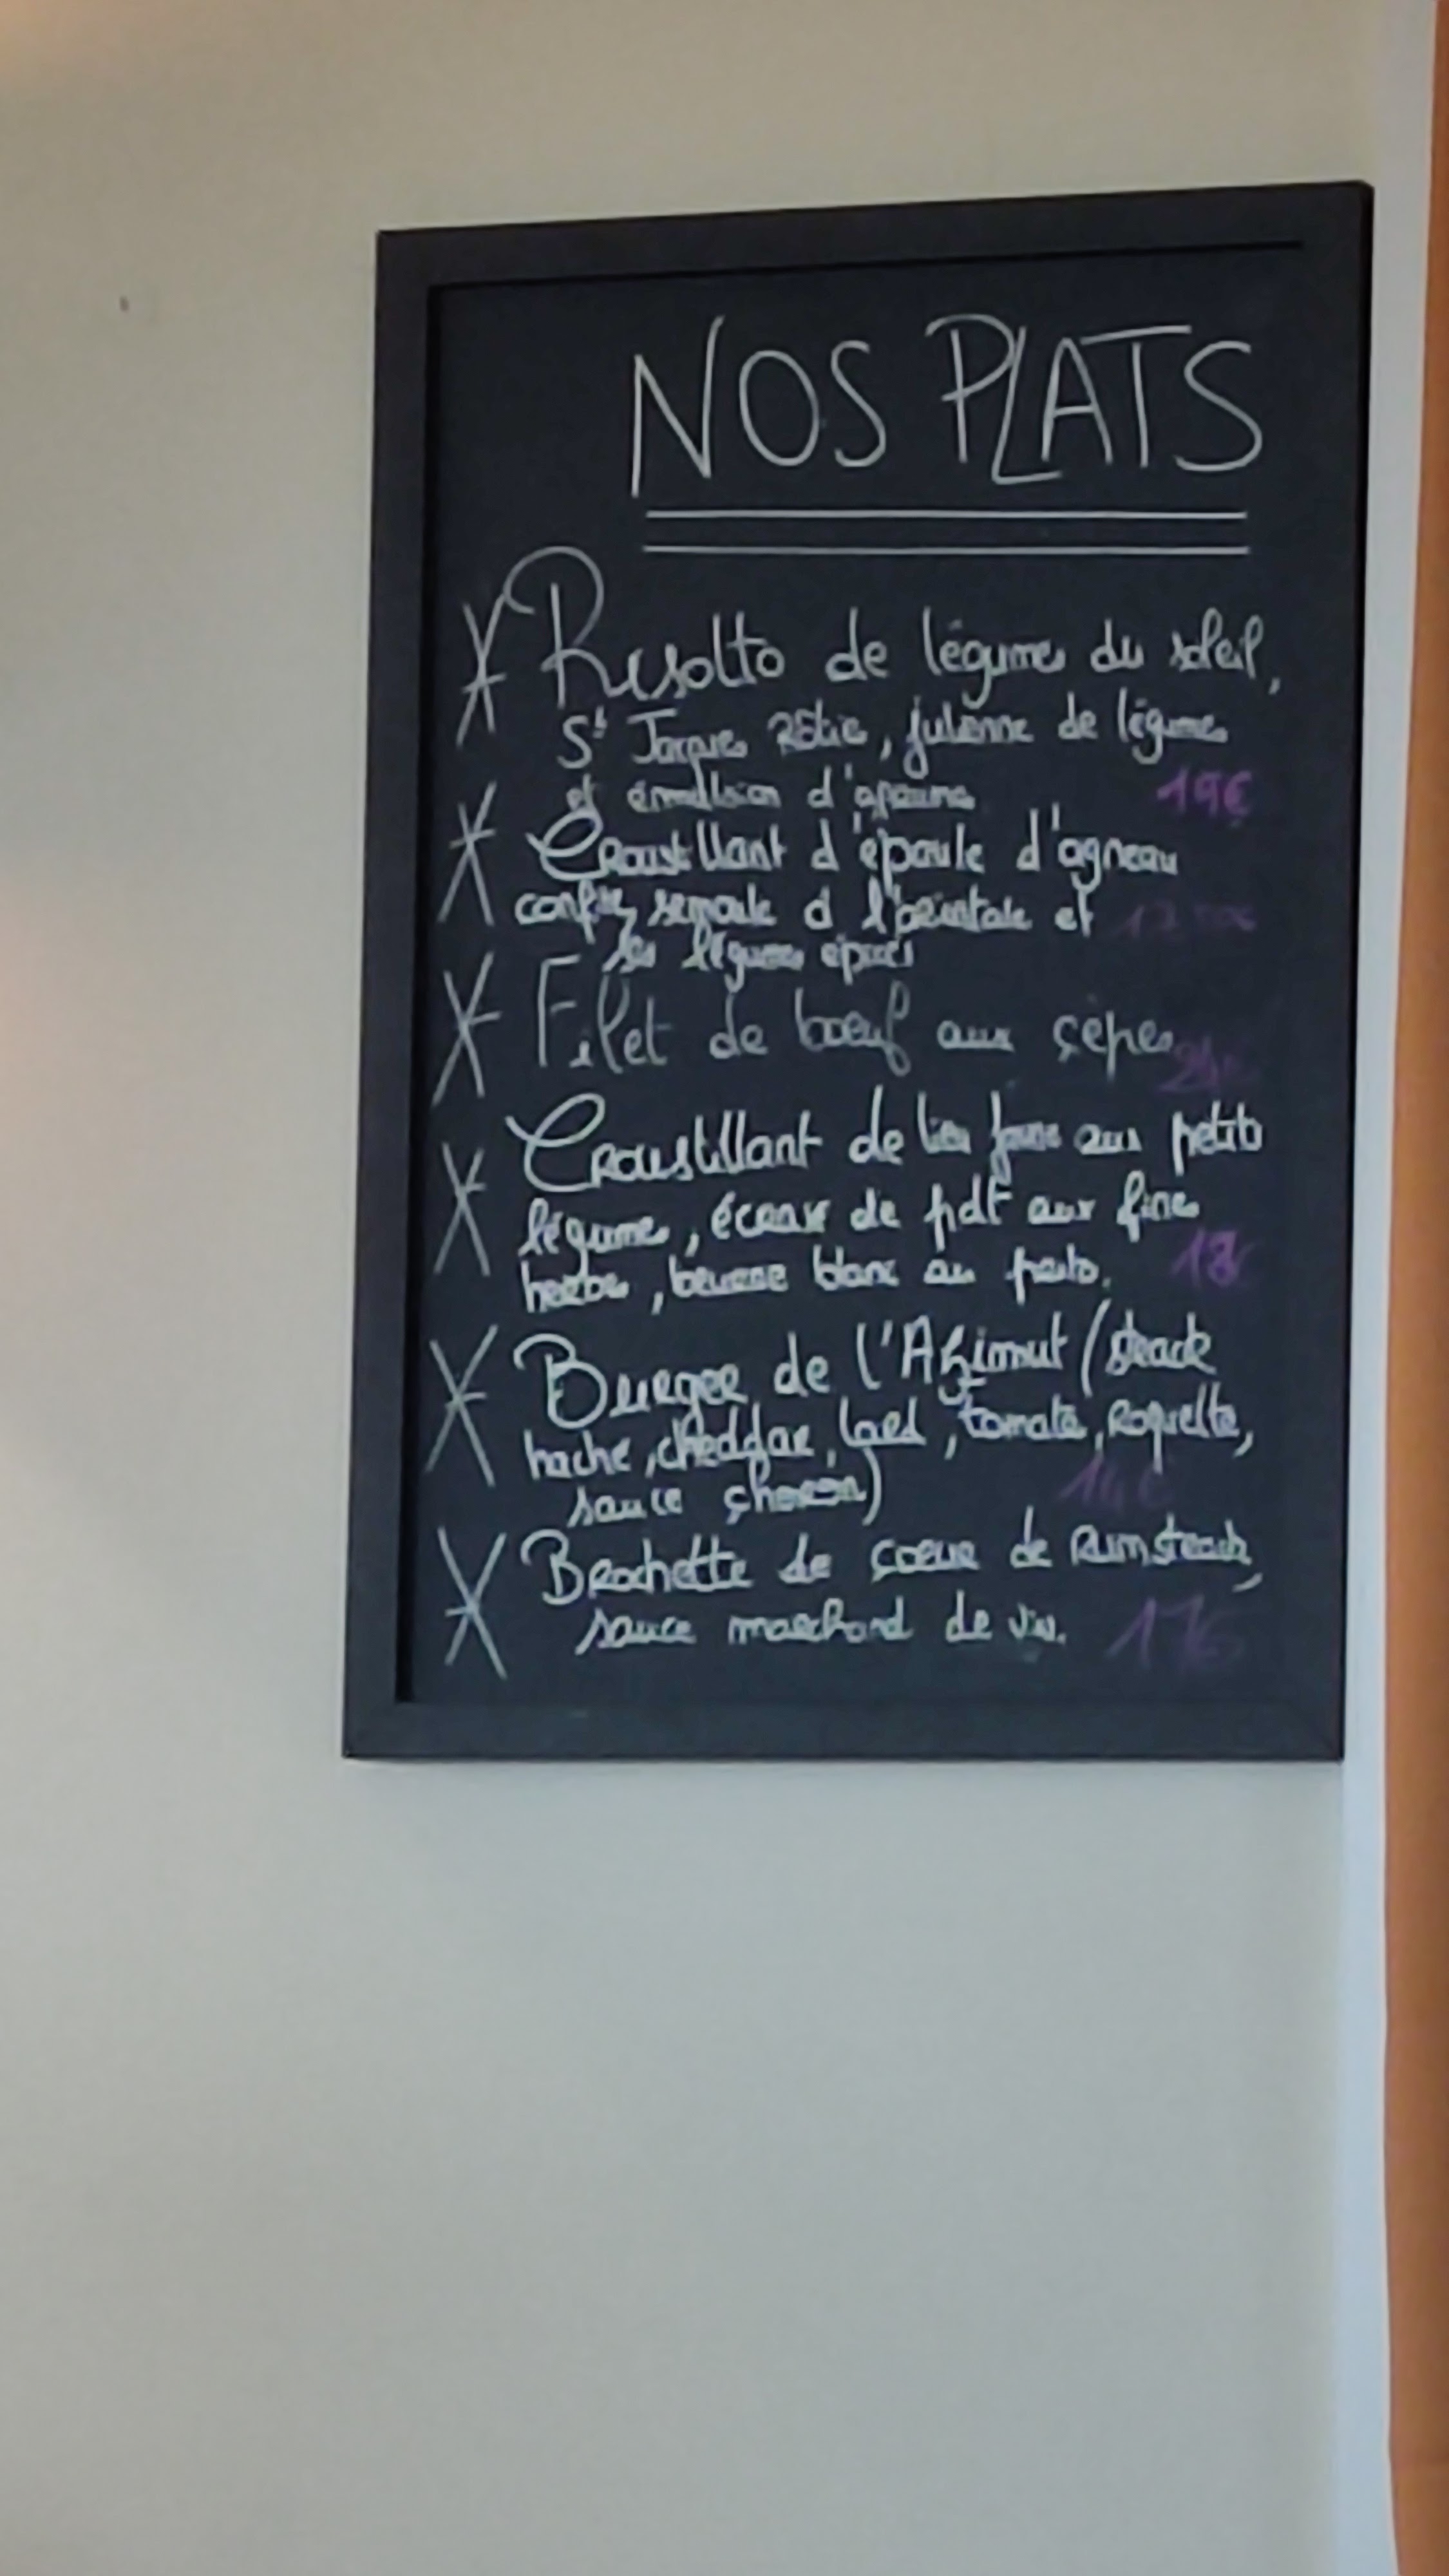 NOS PLATS
Risotto de légumes du soleil,
St Jacques Rôtie, julienne de légumes
et émulsion d'
19€
Croustillant d'épaule d'agneau
confie, semoule à l'orientale et
les légumes épicés
Filet de boeuf aux cèpes
Croustillant de lieu jaune aux petits
légumes, écrasé de pdt aux fines
herbes, beurre blanc au
18€
Burger de l'Azimut (steack
haché, cheddar, lard, tomate, roquette,
sauce choron)
14€
Brochette de coeur de Rumsteack,
sauce marchand de vin.
17€